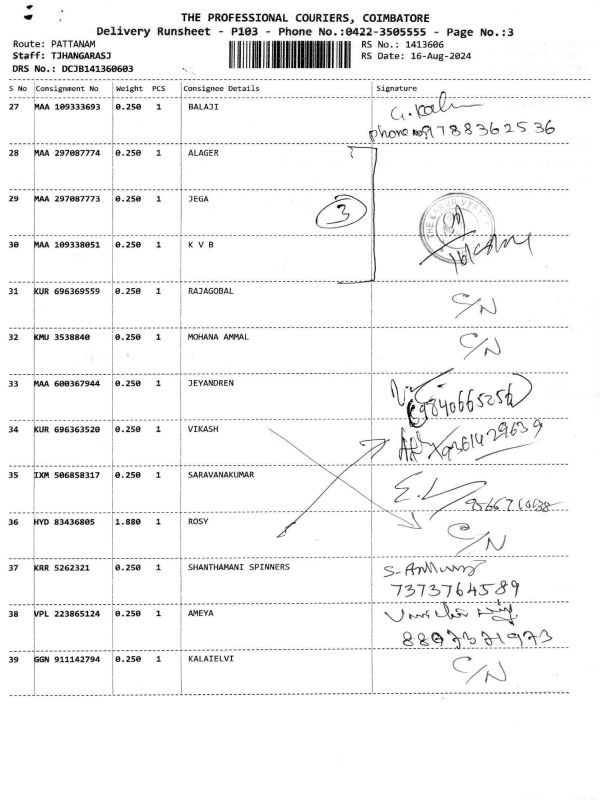 THE PROFESSIONAL COURIERS, COIMBATORE
Delivery Runsheet - P103 - Phone No.:0422-3505555 - Page No.:3
Route: PATTANAM
RS No.: 1413606
Staff: TJHANGARASJ
RS Date: 16-Aug-2024
DRS No.: DCJB141360603
S No Consignment No Weight PCS Consignee Details Signature
27 MAA 109333693 0.250 1 BALAJI
phone no 91788362536
28 MAA 297087774 0.250 1 ALAGER
29 MAA 297087773 0.250 1 JEGA
3
30 MAA 109338051 0.250 1 K V B
31 KUR 696369559 0.250 1 RAJAGOBAL C/N
32 KMU 3538840 0.250 1 MOHANA AMMAL C/N
33 MAA 600367944 0.250 1 JEYANDREN
9840665256
34 KUR 696363520 0.250 1 VIKASH
9361429639
35 IXM 506858317 0.250 1 SARAVANAKUMAR
36 HYD 83436805 1.880 1 ROSY C/N
37 KRR 5262321 0.250 1 SHANTHAMANI SPINNERS
7373764589
38 VPL 223865124 0.250 1 AMEYA
8807371973
39 GGN 911142794 0.250 1 KALAIELVI C/N